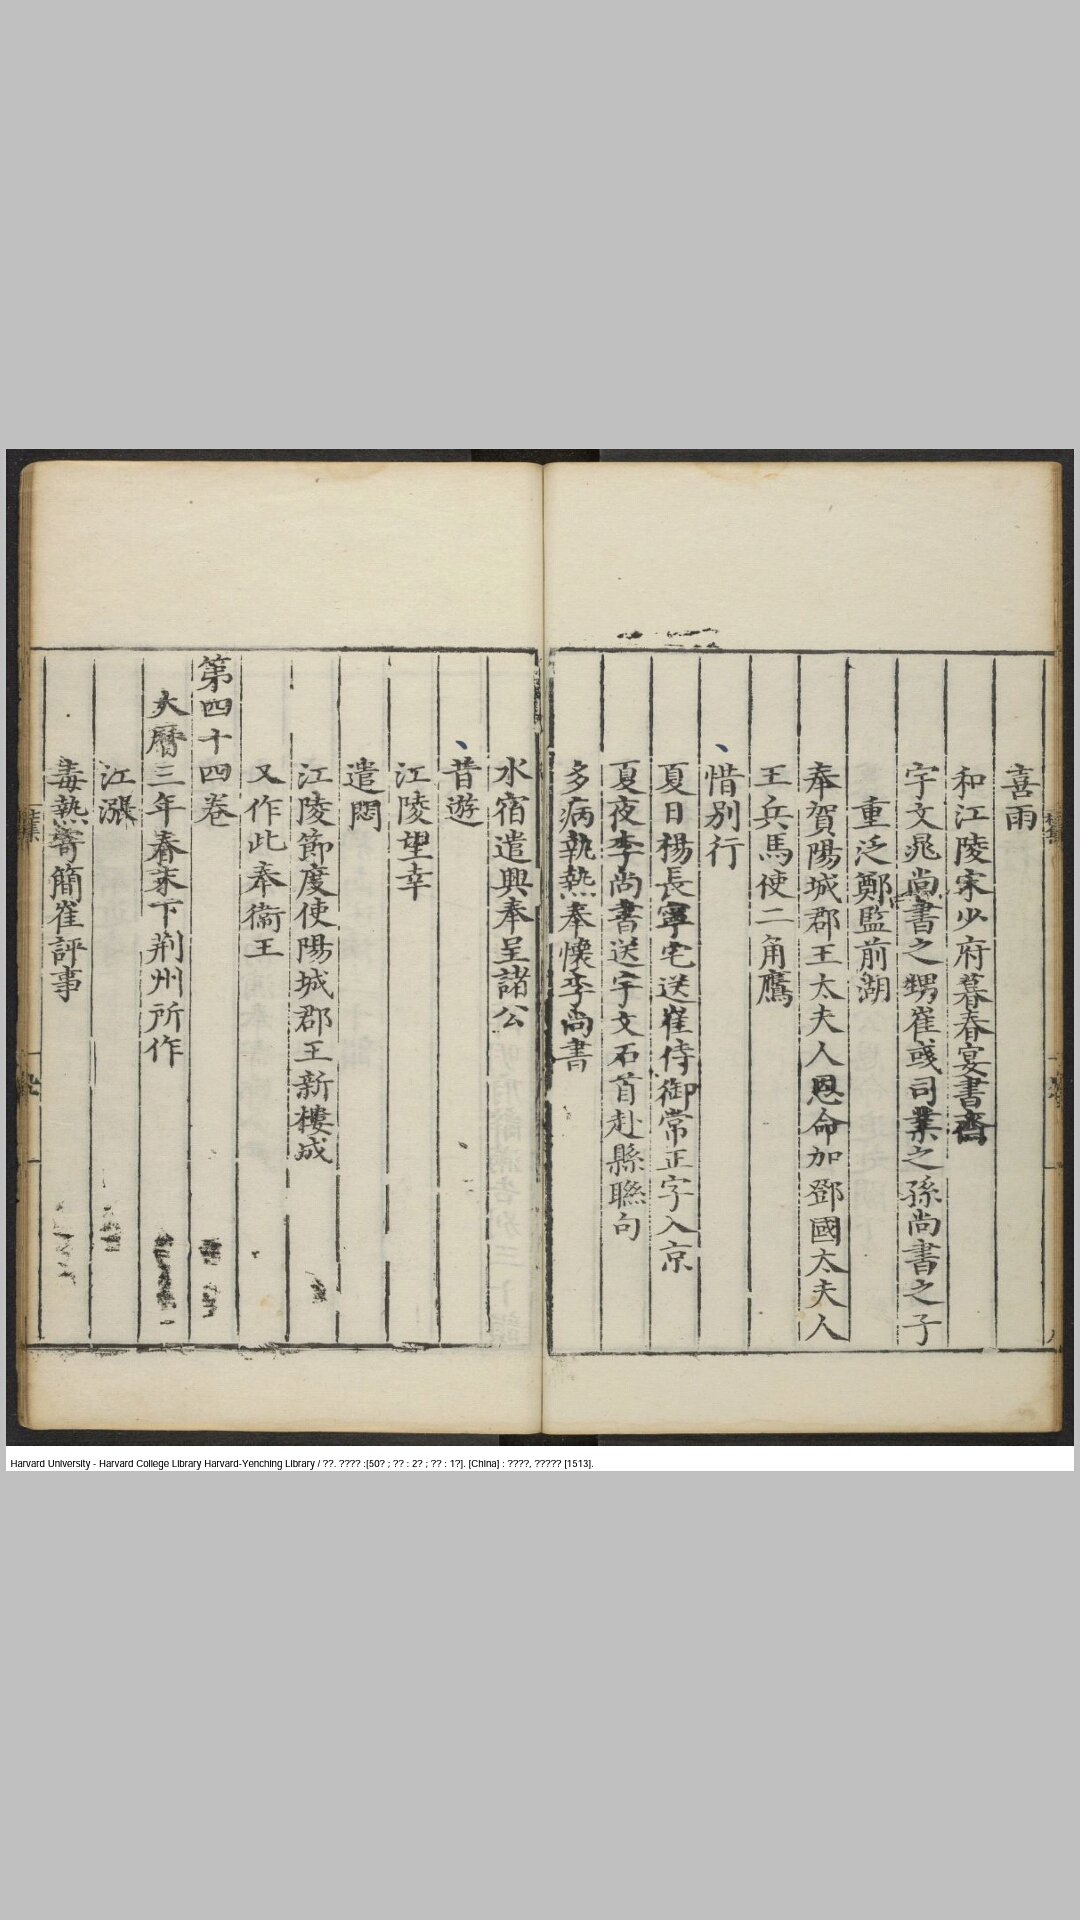 喜雨
和江陵宋少府暮春宴書齋
宇文晁尚書之甥崔彧司業之孫尚書之子
重泛鄭監前湖
奉賀陽城郡王太夫人恩命加鄧國太夫人
王兵馬使二角鷹
惜別行
夏日楊長寧宅送崔侍御常正字入京
夏夜李尚書送宇文石首赴縣聮句
多病執熱奉懷李尚書
水宿遣興奉呈諸公
昔遊
江陵望幸
遣悶
江陵節度使陽城郡王新樓成
又作此奉衞王
第四十四卷
大曆三年春末下荆州所作
江漲
毒熱寄簡崔評事
Harvard University - Harvard College Library Harvard-Yenching Library / ??. ???? :[50? ; ?? : 2? ; ?? : 1?]. [China] : ????, ????? [1513].